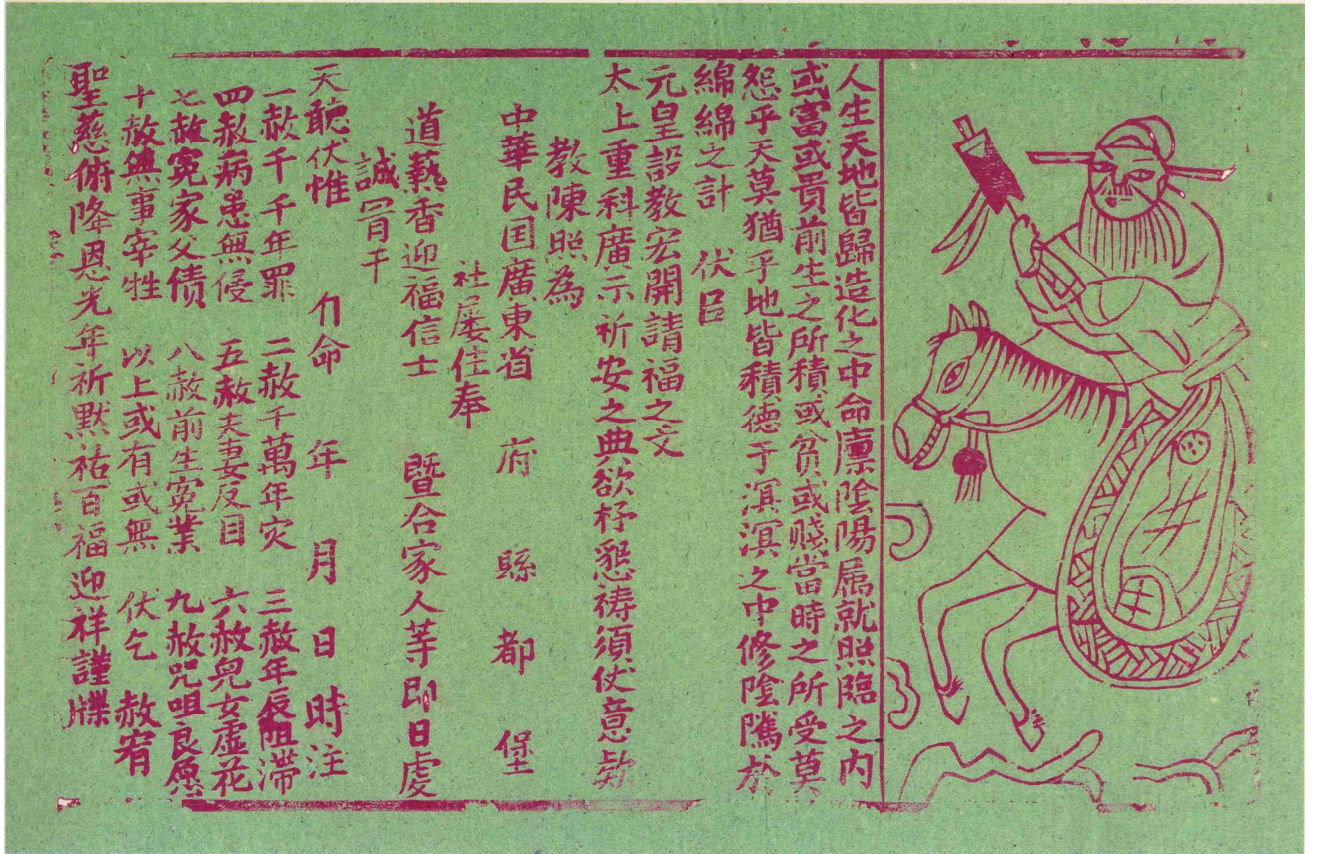 人生天地皆歸造化之中命稟陰陽属就照臨之内
或富或貴前生之所積或貧或賤當時之所受莫
怨乎天莫猶乎地皆積德于溟溟之中修陰隲於
綿綿之計 伏㠯
元皇設教宏開請福之文
太上重科廣示祈安之典欲杼懇禱須伏意欵
教陳照為
中華民囯廣東省 府 縣 都 堡
社屡住奉
道爇香迎福信士 暨合家人等即日處
誠冐干
天聽伏惟 命 年 月 日 時注
一赦千千年罪 二赦千萬年灾 三赦年辰阻滯
四赦病患無侵 五赦夫妻反目 六赦兒女虛花
七赦寃家父債 八赦前生寃業 九赦咒咀良愿
十赦無事宰牲 以上或有或無 伏乞 赦宥
聖慈俯降恩光年祈默祐百福迎祥謹牒